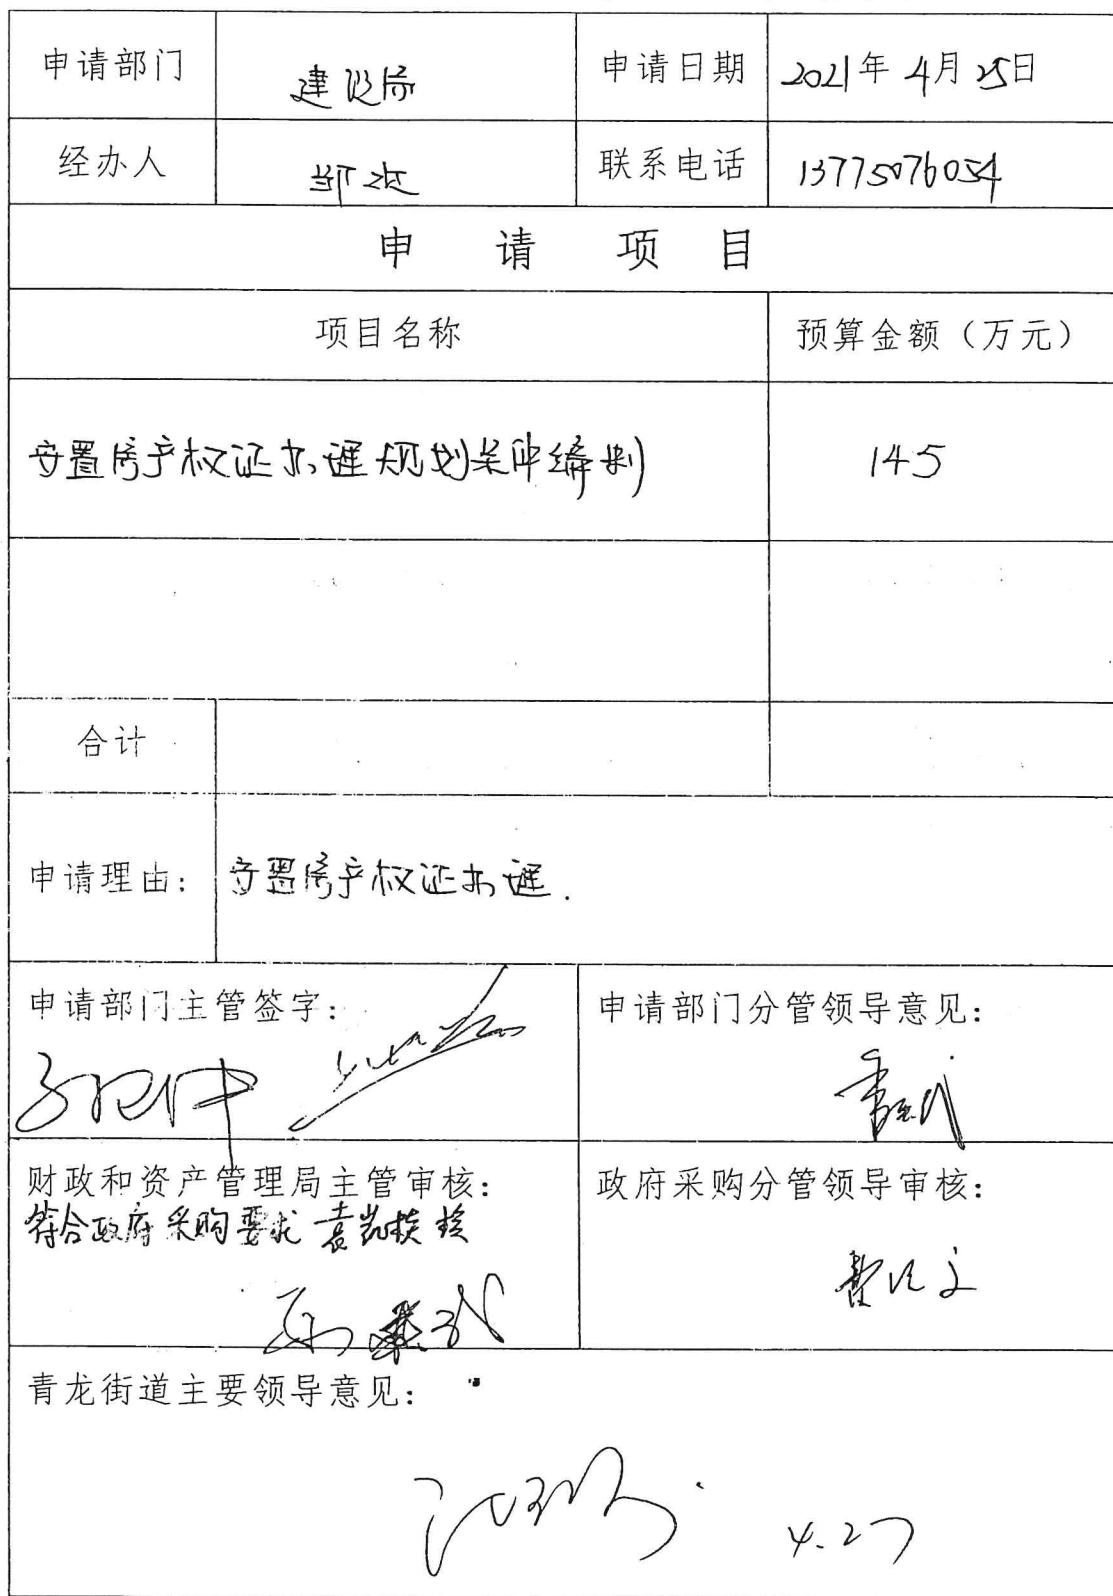 申请部门 建设局 申请日期 2021年 4月 25日
经办人 邹 联系电话 13775076054
申 请 项 目
项目名称 预算金额（万元）
安置房产权证办理规划条件编制 145
合计
申请理由: 安置房产权证办理.
申请部门主管签字: 申请部门分管领导意见:
财政和资产管理局主管审核: 政府采购分管领导审核:
符合政府采购要求 袁凯
青龙街道主要领导意见:
4.27